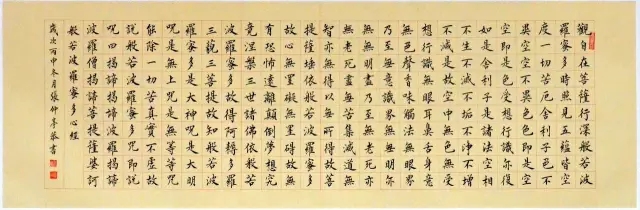 觀自在菩薩行深般若波
羅蜜多時照見五蘊皆空
度一切苦厄舍利子色不
異空空不異色色即是空
空即是色受想行識亦復
如是舍利子是諸法空相
不生不滅不垢不淨不增
不減是故空中無色無受
想行識無眼耳鼻舌身意
無色聲香味觸法無眼界
乃至無意識界無無明亦
無無明盡乃至無老死亦
無老死盡無苦集滅道無
智亦無得以無所得故菩
提薩埵依般若波羅蜜多
故心無罣礙無罣礙故無
有恐怖遠離顛倒夢想究
竟涅槃三世諸佛依般若
波羅蜜多故得阿耨多羅
三藐三菩提故知般若波
羅蜜多是大神咒是大明
咒是無上咒是無等等咒
能除一切苦真實不虛故
說般若波羅蜜多咒即說
咒曰揭諦揭諦波羅揭諦
波羅僧揭諦菩提薩婆訶
般若波羅蜜多心經
歲次丙申冬月張仲亭敬書